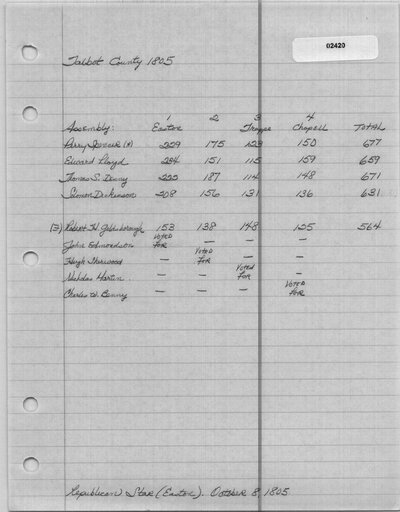 02420
Talbot County 1805
1 2 3 4
Assembly: Easton Trappe Chapell TOTAL
Perry Spencer (*) 229 175 123 150 677
Edward Lloyd 234 151 115 159 659
Thomas S. Denny 222 187 114 148 671
Solomon Dickinson 208 156 131 136 631
Robert H. Goldsborough 153 138 148 125 564
John Edmondson VOTED FOR — — —
Hugh Sherwood — VOTED FOR — —
Nicholas Martin — — VOTED FOR —
Charles W. Benny — — — VOTED FOR
Republican Star (Easton). October 8, 1805